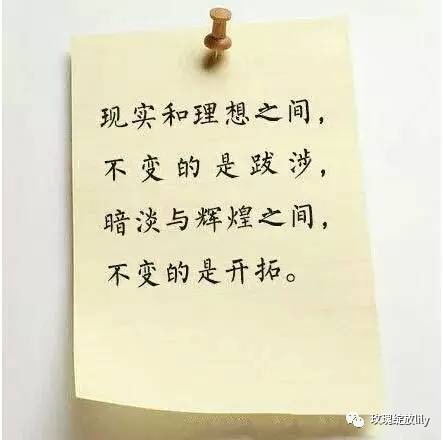 现实和理想之间，
不变的是跋涉，
暗淡与辉煌之间，
不变的是开拓。
玫瑰绽放lily